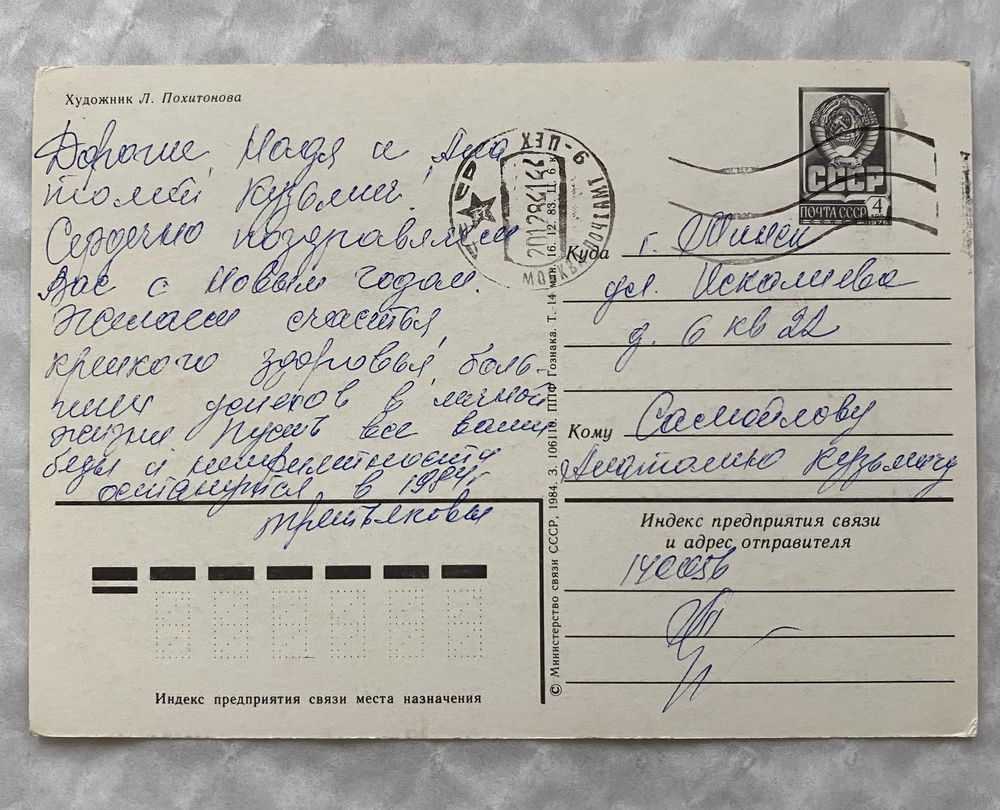 Художник Л. Похитонова
Дорогие Надя и Ана
толий Кузьмич!
Сердечно поздравляем
Вас с Новым годом.
Желаем счастья,
крепкого здоровья, боль-
ших успехов в личной
жизни Пусть все ваши
беды и неприятности
останутся в 1984 г.
Третьяковы
СССР
ПОЧТА СССР 4
1976
МОСКВА ПОЧТАМТ
ХЕП-6
201284
Куда г. Минск
ул. Искалиева
д. 6 кв 22
Кому Самойлову
Анатолию Кузьмичу
Индекс предприятия связи
и адрес отправителя
140056
Индекс предприятия связи места назначения
© Министерство связи СССР, 1984. З. 106110. ППФ Гознака. Т. 14 млн. 16. 12. 83. Ц. 6 к.